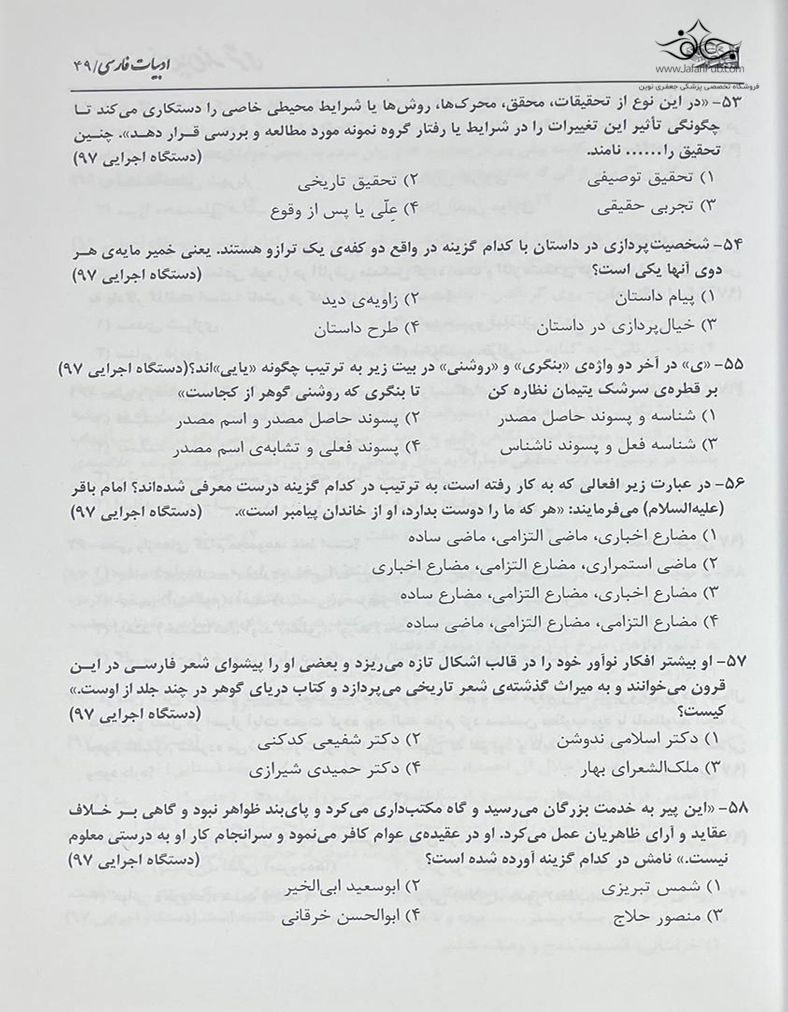 www.JafariPub.com
فروشگاه تخصصی پزشکی جعفری نوین
ادبیات فارسی/۴۹
۵۳- «در این نوع از تحقیقات، محقق، محرک‌ها، روش‌ها یا شرایط محیطی خاصی را دستکاری می‌کند تا
چگونگی تأثیر این تغییرات را در شرایط یا رفتار گروه نمونه مورد مطالعه و بررسی قرار دهد». چنین
تحقیق را...... نامند. (دستگاه اجرایی ۹۷)
۱) تحقیق توصیفی ۲) تحقیق تاریخی
۳) تجربی حقیقی ۴) عِلّی یا پس از وقوع
۵۴- شخصیت‌پردازی در داستان با کدام گزینه در واقع دو کفه‌ی یک ترازو هستند. یعنی خمیر مایه‌ی هر
دوی آنها یکی است؟ (دستگاه اجرایی ۹۷)
۱) پیام داستان ۲) زاویه‌ی دید
۳) خیال‌پردازی در داستان ۴) طرح داستان
۵۵- «ی» در آخر دو واژه‌ی «بنگری» و «روشنی» در بیت زیر به ترتیب چگونه «یایی»اند؟(دستگاه اجرایی ۹۷)
بر قطره‌ی سرشک یتیمان نظاره کن تا بنگری که روشنی گوهر از کجاست»
۱) شناسه و پسوند حاصل مصدر ۲) پسوند حاصل مصدر و اسم مصدر
۳) شناسه فعل و پسوند ناشناس ۴) پسوند فعلی و تشابه‌ی اسم مصدر
۵۶- در عبارت زیر افعالی که به کار رفته است، به ترتیب در کدام گزینه درست معرفی شده‌اند؟ امام باقر
(علیه‌السلام) می‌فرمایند: «هر که ما را دوست بدارد، او از خاندان پیامبر است». (دستگاه اجرایی ۹۷)
۱) مضارع اخباری، ماضی التزامی، ماضی ساده
۲) ماضی استمراری، مضارع التزامی، مضارع اخباری
۳) مضارع اخباری، مضارع التزامی، مضارع ساده
۴) مضارع التزامی، مضارع التزامی، ماضی ساده
۵۷- او بیشتر افکار نوآور خود را در قالب اشکال تازه می‌ریزد و بعضی او را پیشوای شعر فارسی در این
قرون می‌خوانند و به میراث گذشته‌ی شعر تاریخی می‌پردازد و کتاب دریای گوهر در چند جلد از اوست.»
کیست؟ (دستگاه اجرایی ۹۷)
۱) دکتر اسلامی ندوشن ۲) دکتر شفیعی کدکنی
۳) ملک‌الشعرای بهار ۴) دکتر حمیدی شیرازی
۵۸- «این پیر به خدمت بزرگان می‌رسید و گاه مکتب‌داری می‌کرد و پای‌بند ظواهر نبود و گاهی بر خلاف
عقاید و آرای ظاهریان عمل می‌کرد. او در عقیده‌ی عوام کافر می‌نمود و سرانجام کار او به درستی معلوم
نیست.» نامش در کدام گزینه آورده شده است؟ (دستگاه اجرایی ۹۷)
۱) شمس تبریزی ۲) ابوسعید ابی‌الخیر
۳) منصور حلاج ۴) ابوالحسن خرقانی